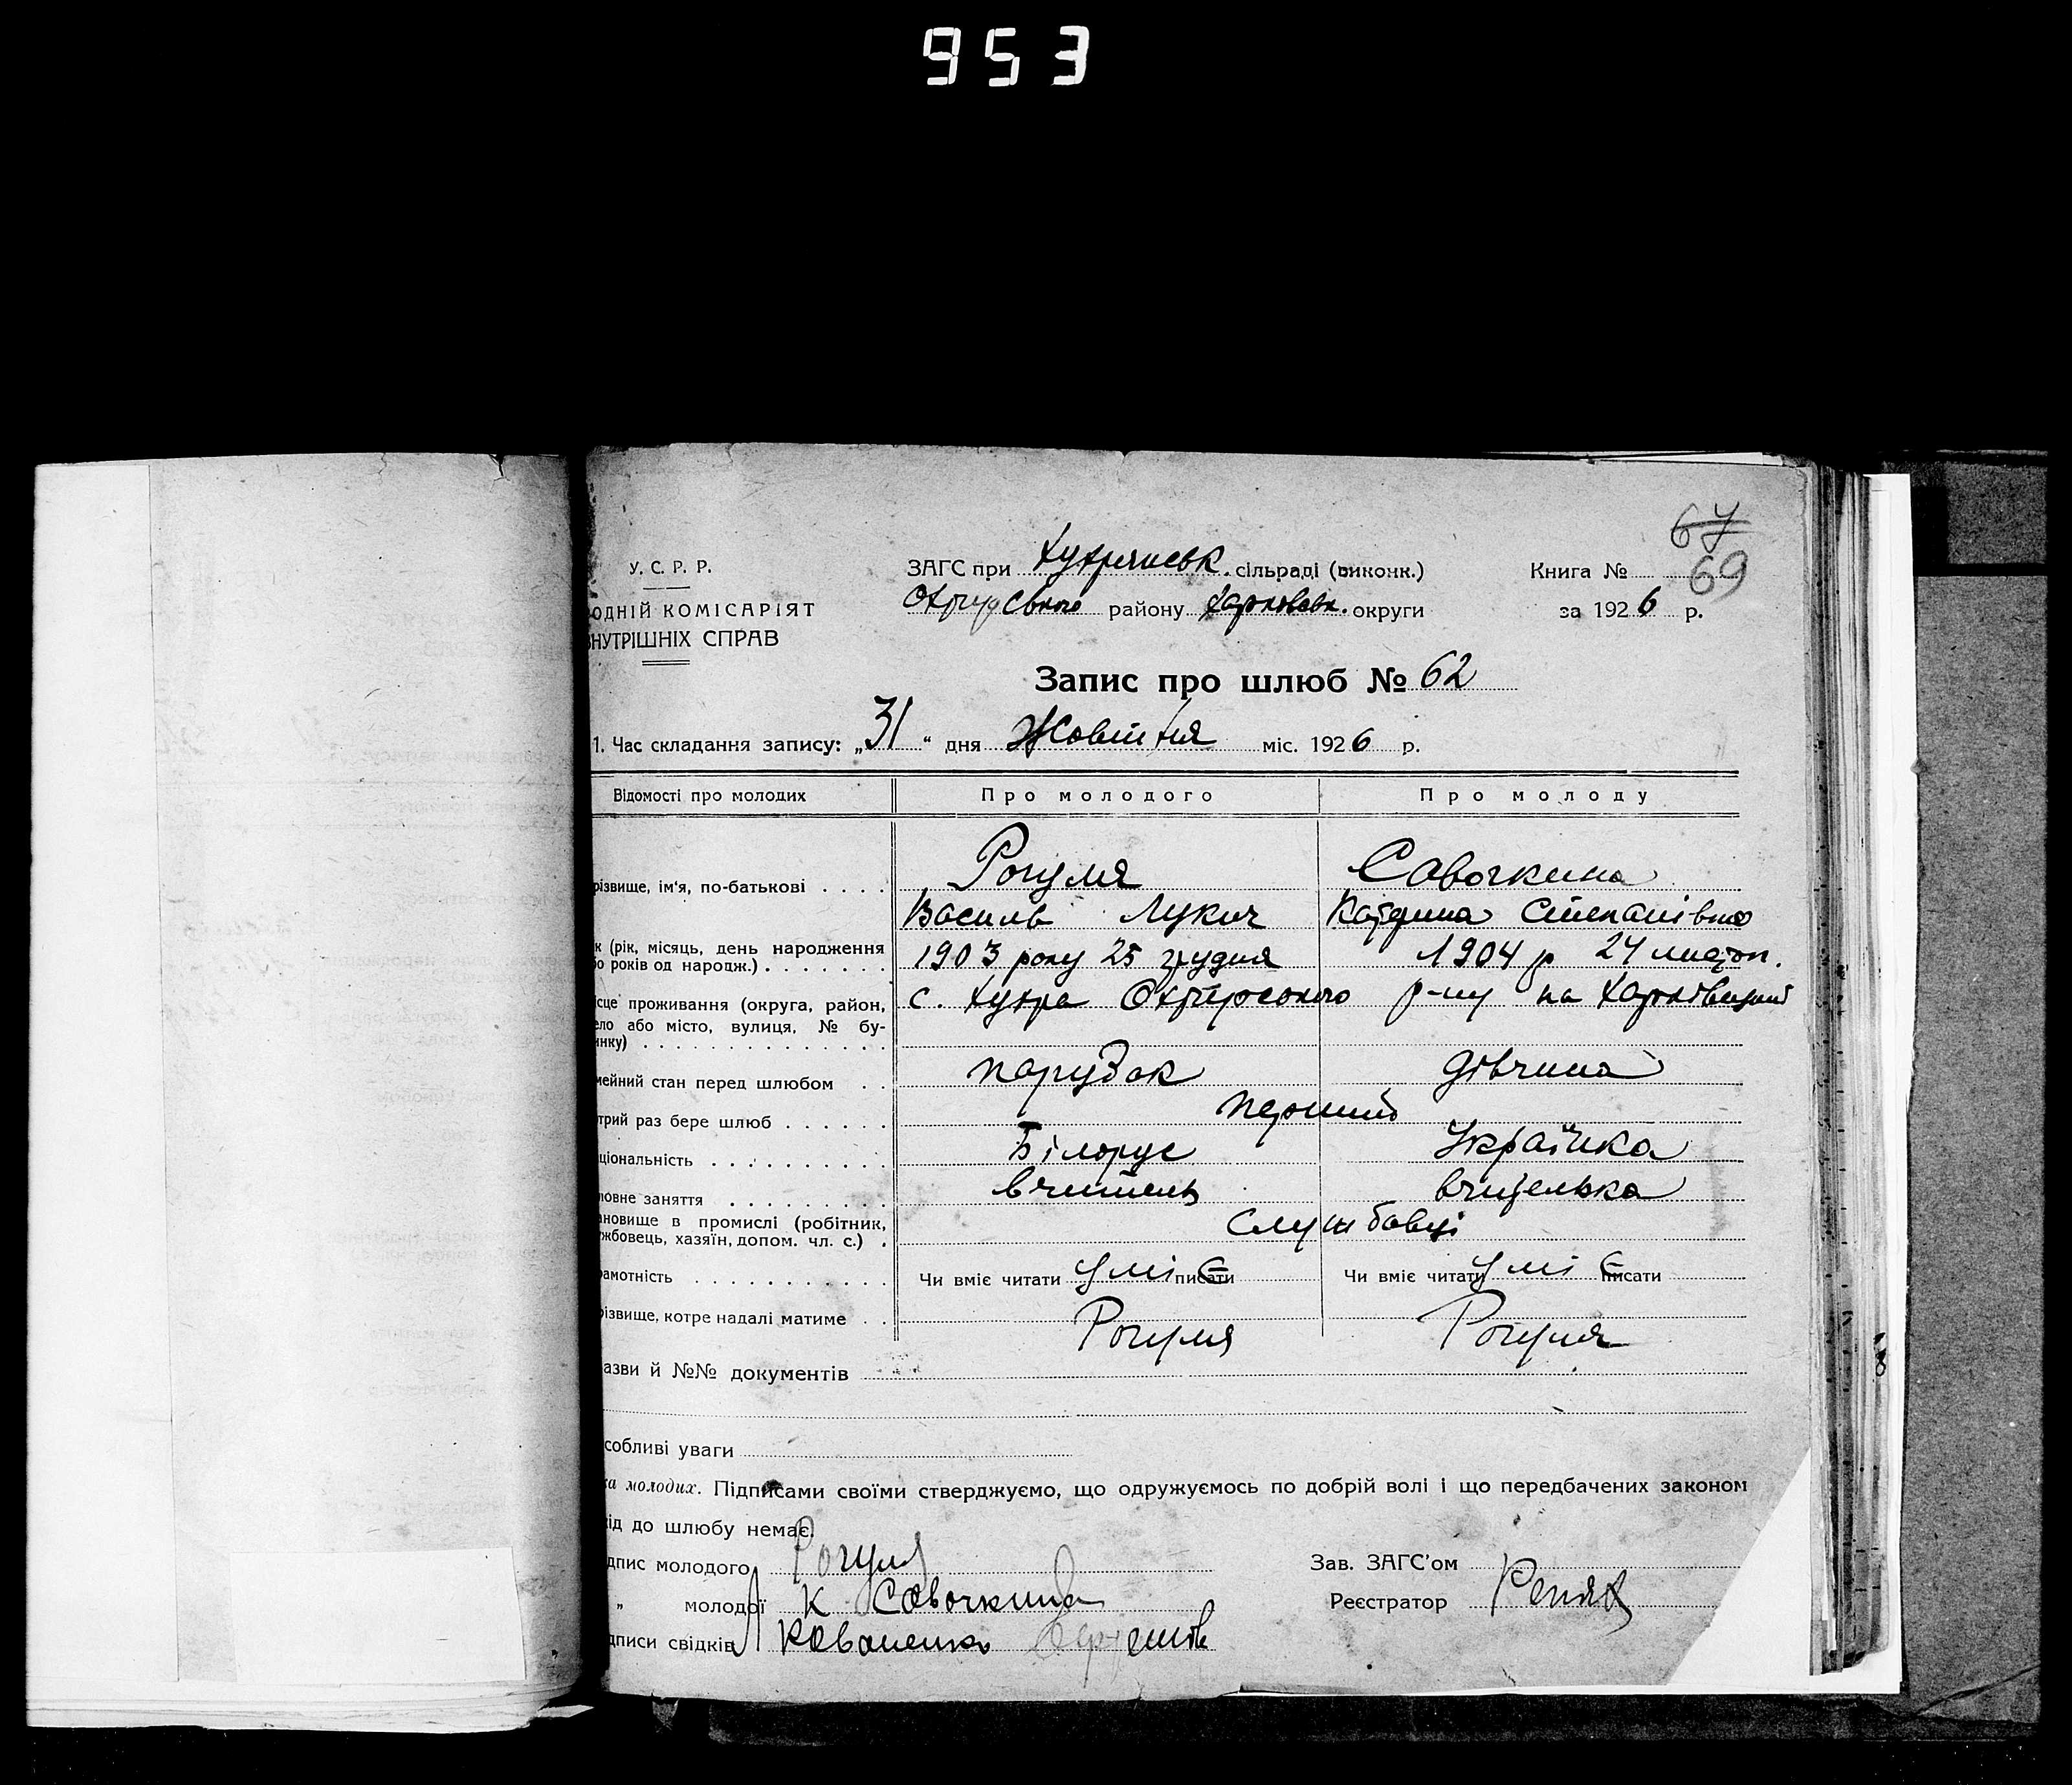 953
67
69
У. С. Р. Р.
ЗАГС при Хухрянськ. сільраді (виконк.)
Книга №
ОДНІЙ КОМІСАРІЯТ
району Харьківськ. округи
за 1926 р.
НУТРІШНІХ СПРАВ
Запис про шлюб № 62
1. Час складання запису: „31“ дня Жовтня міс. 1926 р.
Відомості про молодих
Про молодого
Про молоду
різвище, ім'я, по-батькові
Рогуля
Савочкина
Василь Лукич
Катерина Степанівна
к (рік, місяць, день народження
о років од народж.)
1903 року 25 грудня
1904 р 24 листоп.
сце проживання (округа, район,
с. Хухра Охтирського р-ну на Харківщині
ело або місто, вулиця, № бу-
инку)
мейний стан перед шлюбом
парубок
дівчина
трий раз бере шлюб
перший
ціональність
Білорус
Українка
ловне заняття
вчитель
вчителька
ановище в промислі (робітник,
жбовець, хазяїн, допом. чл. с.)
службовці
рамотність
Чи вміє читати уміє писати
Чи вміє читати уміє писати
різвище, котре надалі матиме
Рогуля
Рогуля
азви й №№ документів
собливі уваги
ка молодих. Підписами своїми стверджуємо, що одружуємось по добрій волі і що передбачених законом
ід до шлюбу немає.
дпис молодого Рогуля
Зав. ЗАГС'ом
„ молодої К Савочкина
Реєстратор
дписи свідків